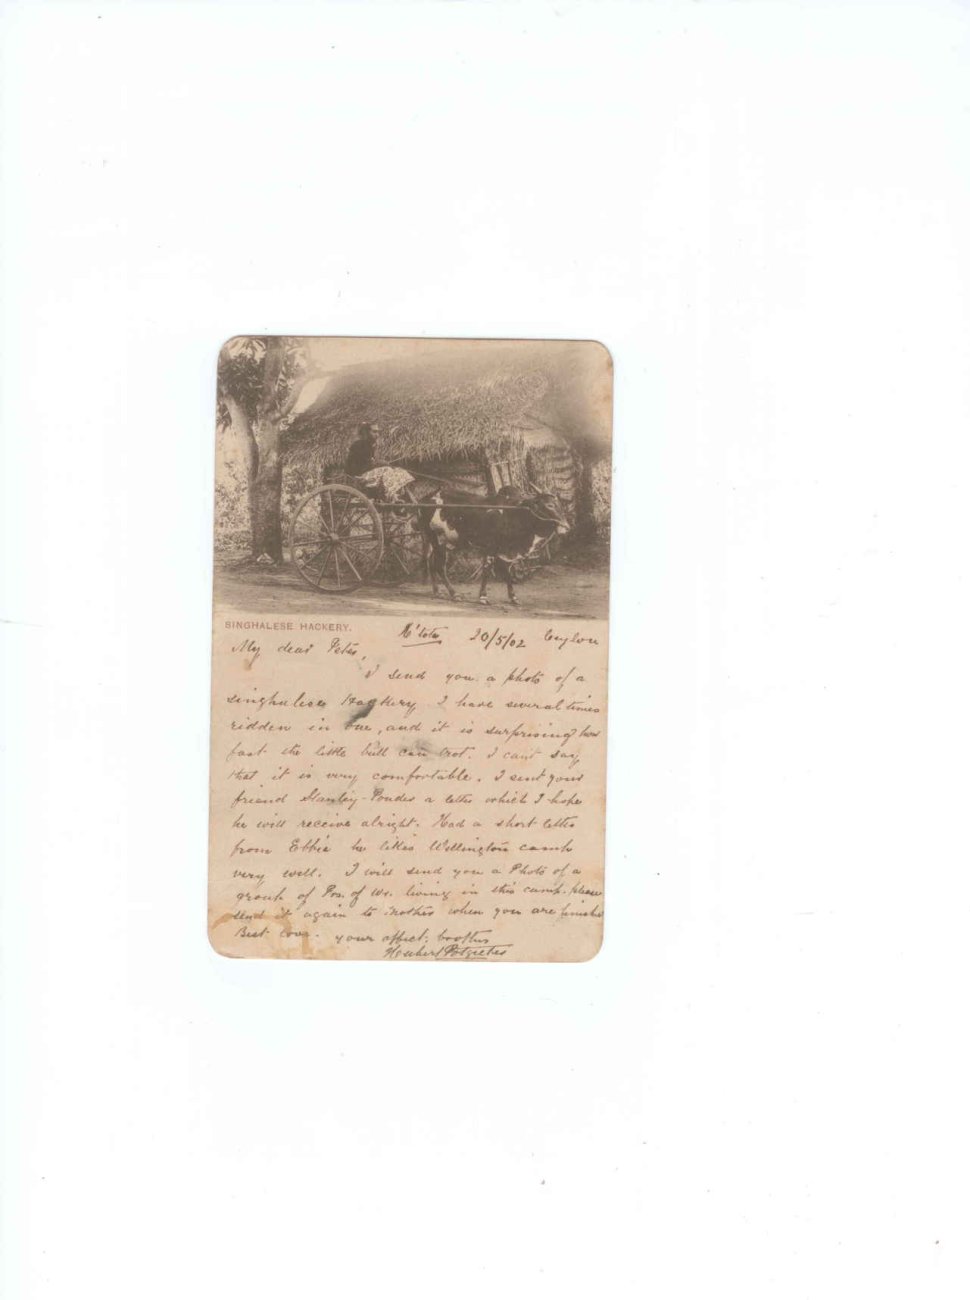 SINGHALESE HACKERY.
H'tota 20/5/02 Ceylon
My dear Peter,
I send you a photo of a
singhalese Hackery I have several times
ridden in one, and it is surprising how
fast the little bull can trot. I cant say
that it is very comfortable. I sent your
friend Stanley a letter which I hope
he will receive alright. Had a short letter
from Ebbie he likes Wellington camp
very well. I will send you a Photo of a
group of Pos. of War living in this camp. please
send it again to Mother when you are finished
Best love. your affect: brother
Herbert Potgieter